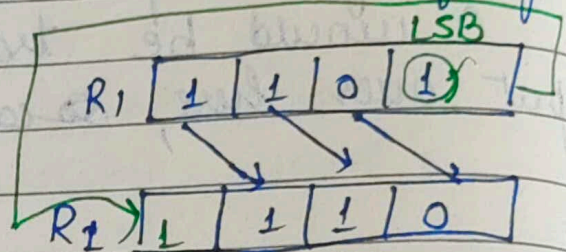 LSB
R1 1 1 0 1
R1 1 1 1 0